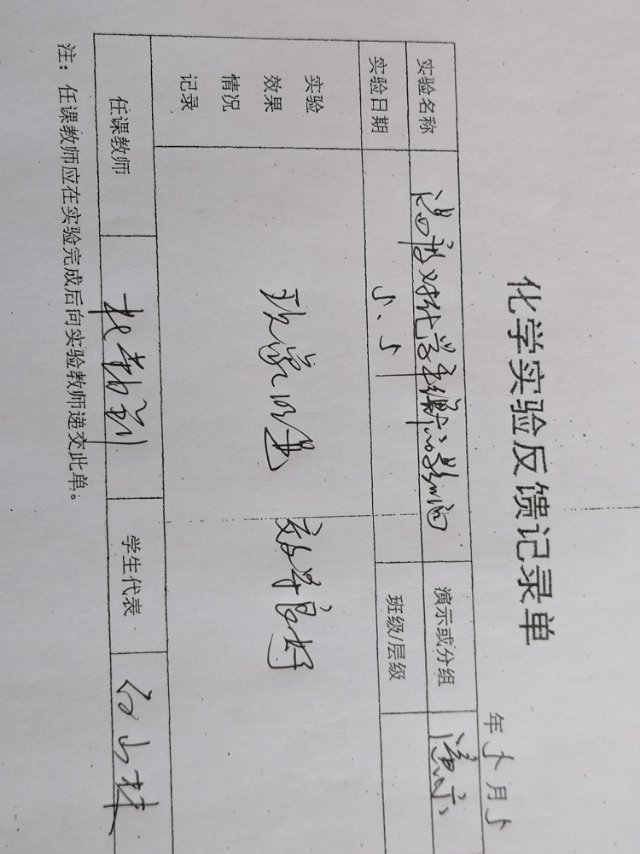 化学实验反馈记录单
年 5 月 5
实验名称 温度对化学平衡的影响 演示或分组 演示
实验日期 5.5 班级/层级
实验
效果
情况
记录
现象明显 效果良好
任课教师 学生代表:
注：任课教师应在实验完成后向实验教师递交此单。